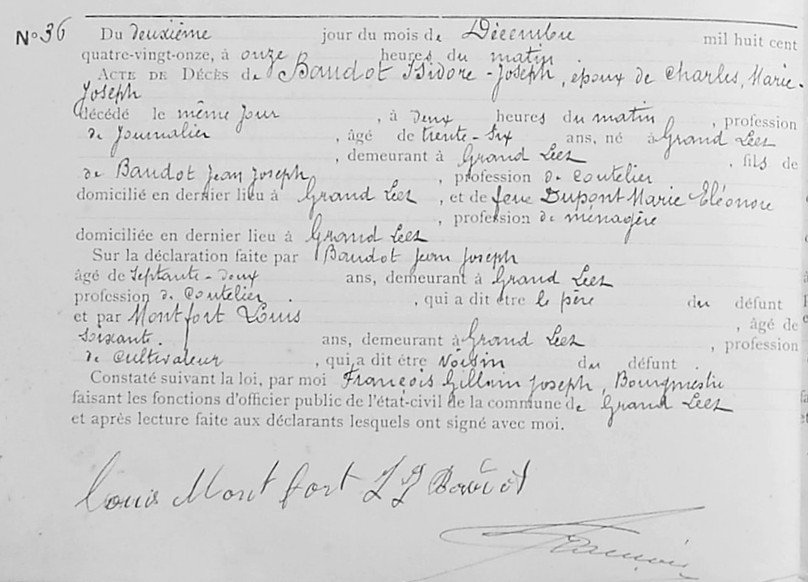 N° 36 Du deuxième jour du mois de Décembre mil huit cent
quatre-vingt-onze, à onze heures du matin
ACTE DE DÉCÈS de Baudot Isidore-Joseph, époux de Charles, Marie-
Joseph
décédé le même jour, à deux heures du matin, profession
de Journalier, âgé de trente-six ans, né à Grand Leez
, demeurant à Grand Leez, fils de
de Baudot Jean Joseph, profession de Coutelier
domicilié en dernier lieu à Grand Leez, et de feue Dupont Marie Eléonore
, profession de ménagère
domiciliée en dernier lieu à Grand Leez
Sur la déclaration faite par Baudot Jean Joseph
âgé de Septante-deux ans, demeurant à Grand Leez
profession de Coutelier, qui a dit être le père du défunt
et par Montfort Louis, âgé de
soixante ans, demeurant à Grand Leez, profession
de Cultivateur, qui a dit être Voisin du défunt.
Constaté suivant la loi, par moi François Gillain Joseph, Bourgmestre
faisant les fonctions d'officier public de l'état-civil de la commune de Grand Leez
et après lecture faite aux déclarants lesquels ont signé avec moi.
Louis Montfort J J Baudot
François